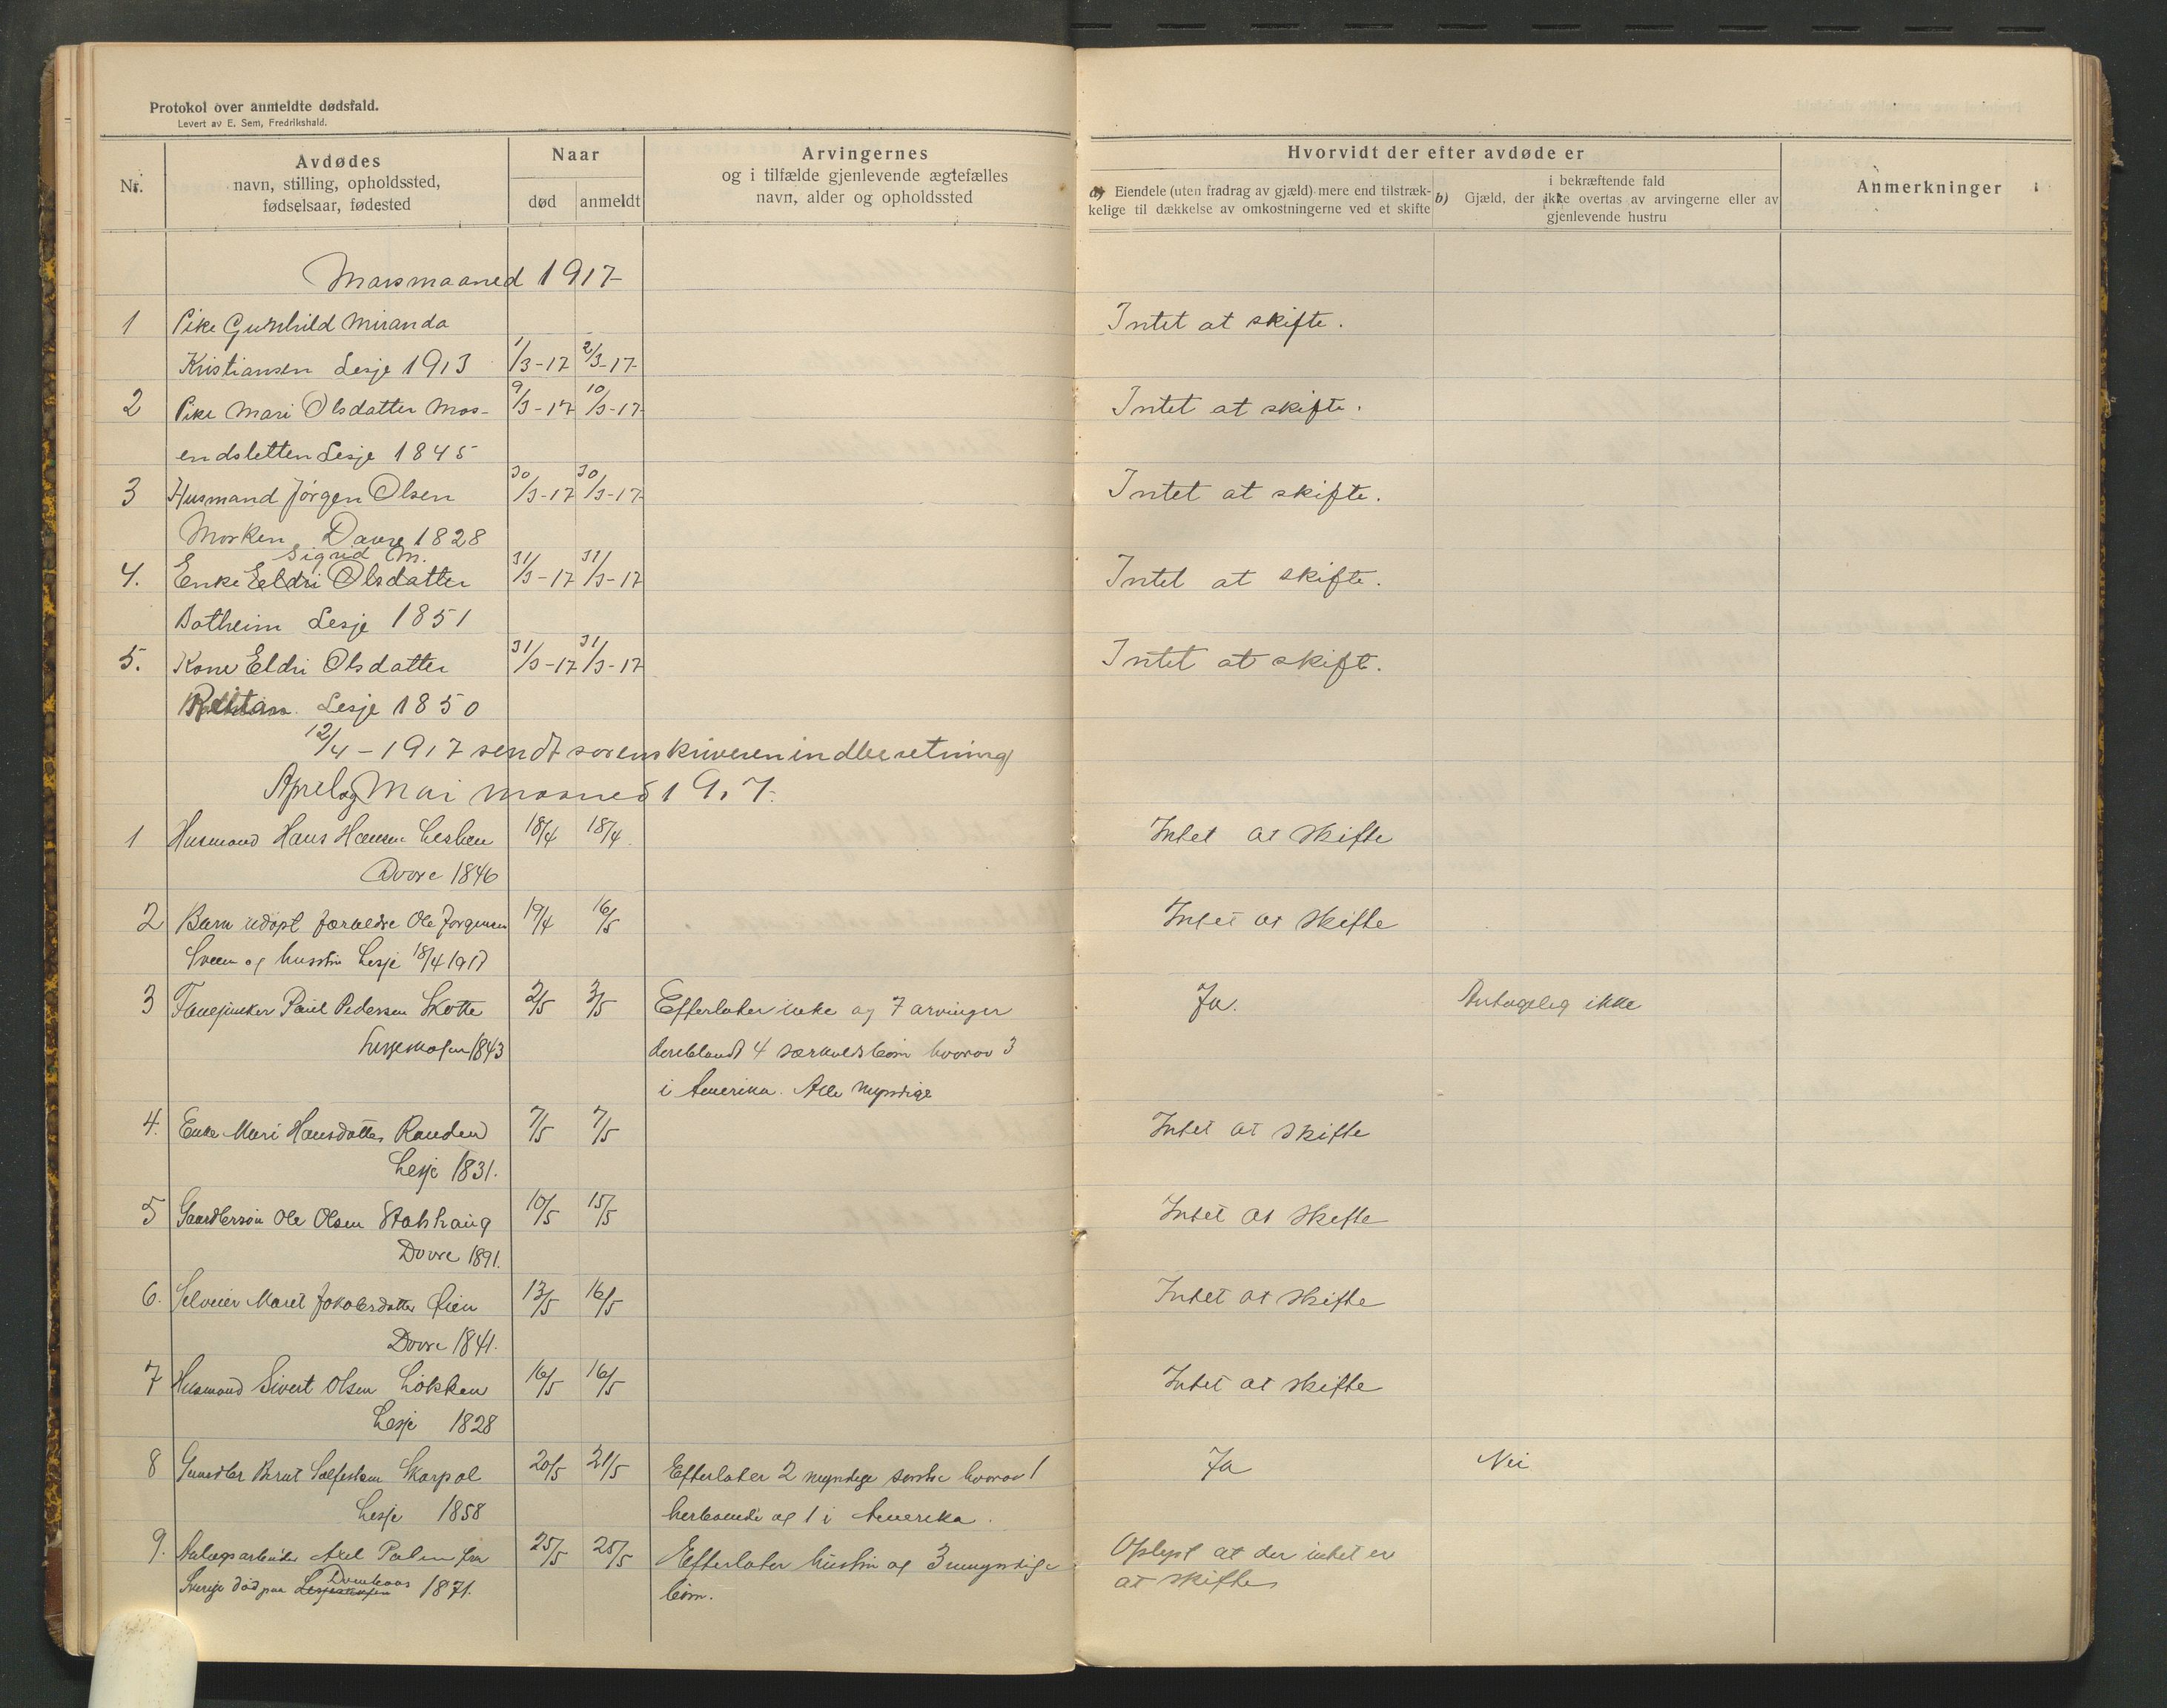 Protokol over anmeldte dødsfald.
Levert av E. Sem, Fredrikshald.
Nr.
Avdødes
navn, stilling, opholdssted,
fødselsaar, fødested
Naar
død
anmeldt
Arvingernes
og i tilfælde gjenlevende ægtefælles
navn, alder og opholdssted
Hvorvidt der efter avdøde er
a) Eiendele (uten fradrag av gjæld) mere end tilstræk-
kelige til dækkelse av omkostningerne ved et skifte
i bekræftende fald
b) Gjæld, der ikke overtas av arvingerne eller av
gjenlevende hustru
Anmerkninger
Marsmaaned 1917
1 Pike Gunhild Miranda Intet at skifte.
Kristiansen Lesje 1913 1/3-17 2/3-17
2 Pike Mari Olsdatter Mos- 9/3-17 10/3-17 Intet at skifte.
endsletten Lesje 1845
3 Husmand Jørgen Olsen 30/3-17 30/3-17 Intet at skifte.
Morken Dovre 1828
Sigrid M.
4. Enke Eldri Olsdatter 31/3-17 31/3-17 Intet at skifte.
Botheim Lesje 1851
5. Kone Eldri Olsdatter 31/3-17 31/3-17 Intet at skifte.
Lesje 1850
12/4-1917 sendt sorenskriveren indberetning
April og Mai maaned 1917.
1 Husmand Hans Hansen Dovre 1846 18/4 18/4 Intet at skifte
2 Barn udøpt forældre Ole Jorgensen 19/4 16/5 Intet at skifte
Sveen og hustru Lesje 18/4 1917
3 Pedersen Skotte 2/5 3/5 Efterlater enke og 7 arvinger Ja. Antagelig ikke
Lesjeskogen 1843 deriblandt 4 særkuldsbørn hvorav 3
i Amerika. Alle myndige
4. Enke Mari Hansdatter Randen 7/5 7/5 Intet at skifte
Lesje 1831.
5 Gaardbrsøn Ole Olsen 10/5 15/5 Intet at skifte
Dovre 1891.
6. Selveier Maret Jakobsdatter Øien 13/5 16/5 Intet at skifte
Dovre 1841.
7 Husmand Sivert Olsen Løkken 16/5 16/5 Intet at skifte
Lesje 1828
8 Gaardbr Bernt Skarpol 20/5 21/5 Efterlater 2 myndige hvorav 1 Ja Nei
Lesje 1858 herboende og 1 i Amerika.
9. Anlægsarbeider Axel Palm fra 25/5 25/5 Efterlater hustru og 3 umyndige Oplyst at der intet er
Sverige død paa Lesjeskogen Dombaas 1871. børn. at skifte